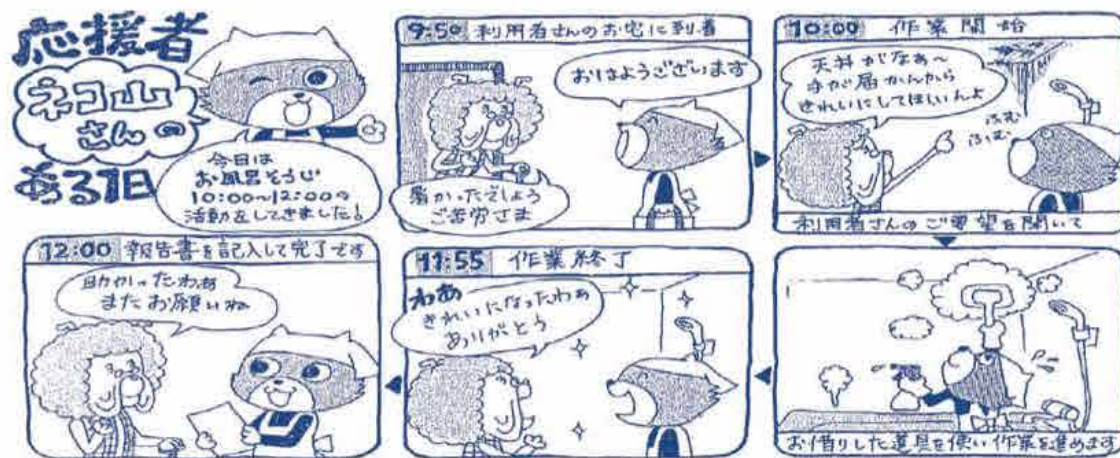 応援者
ネコ山
さんの
ある1日
今日は
お風呂そうじ
10:00〜12:00の
活動をしてきました!
9:50 利用者さんのお宅に到着
おはようございます
暑かったでしょう
ご苦労さま
10:00 作業開始
天井がなぁ〜
手が届かんから
きれいにしてほしいんよ
ふむ
ふーむ
利用者さんのご要望を聞いて
お借りした道具を使い作業を進めます
11:55 作業終了
わあ
きれいになったわぁ
ありがとう
12:00 報告書を記入して完了です
助かったわぁ
またお願いね